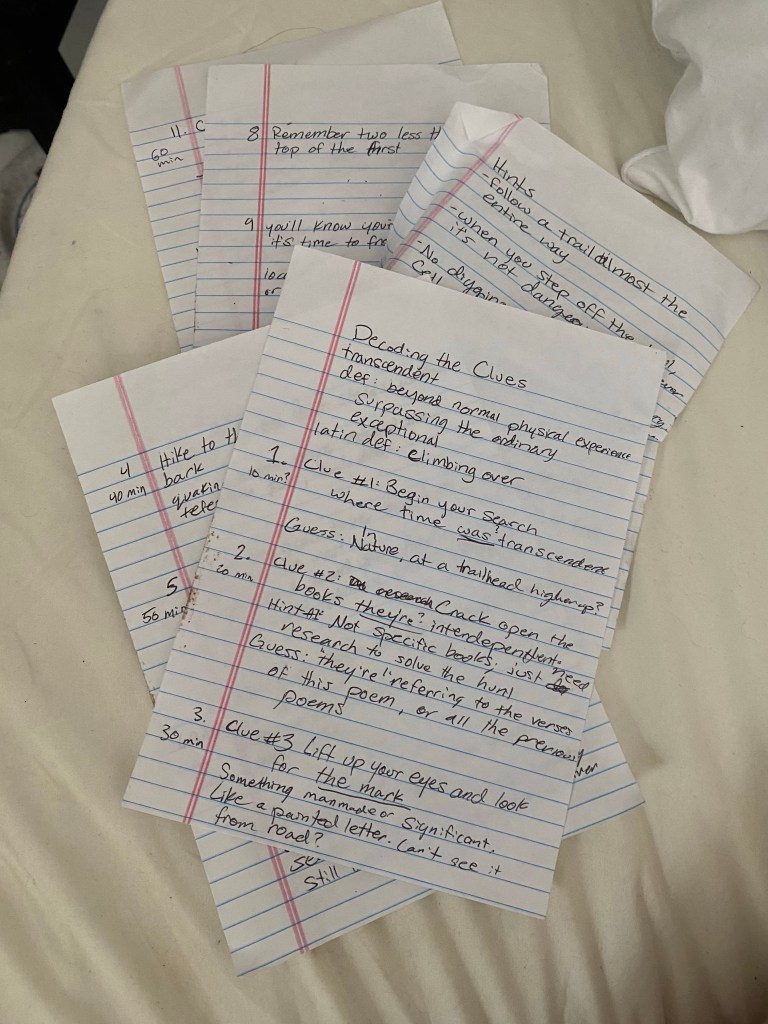 11. C
60
min
8 Remember two less th
top of the first
9 you'll know your
it's time to fre
loc
or
Hints
-Follow a trail almost the
entire way
-when you step off the
it's not dangerous
-No digging
Cell
Decoding the Clues
transcendent
def: beyond normal physical experience
surpassing the ordinary
exceptional
latin def: climbing over
1. Clue #1: Begin your search
10 min? where time was transcendent
Guess: In Nature, at a trailhead higher up?
2. Clue #2: Crack open the
20 min books they're? interdependent.
Hint #1 Not specific books, just need
research to solve the hunt
Guess: "they're" referring to the verses
of this poem, or all the previous
poems
3. Clue #3 Lift up your eyes and look
30 min for the mark
Something manmade or significant.
Like a painted letter. Can't see it
from road?
4 Hike to th
40 min bark
quakin
5
50 min
still